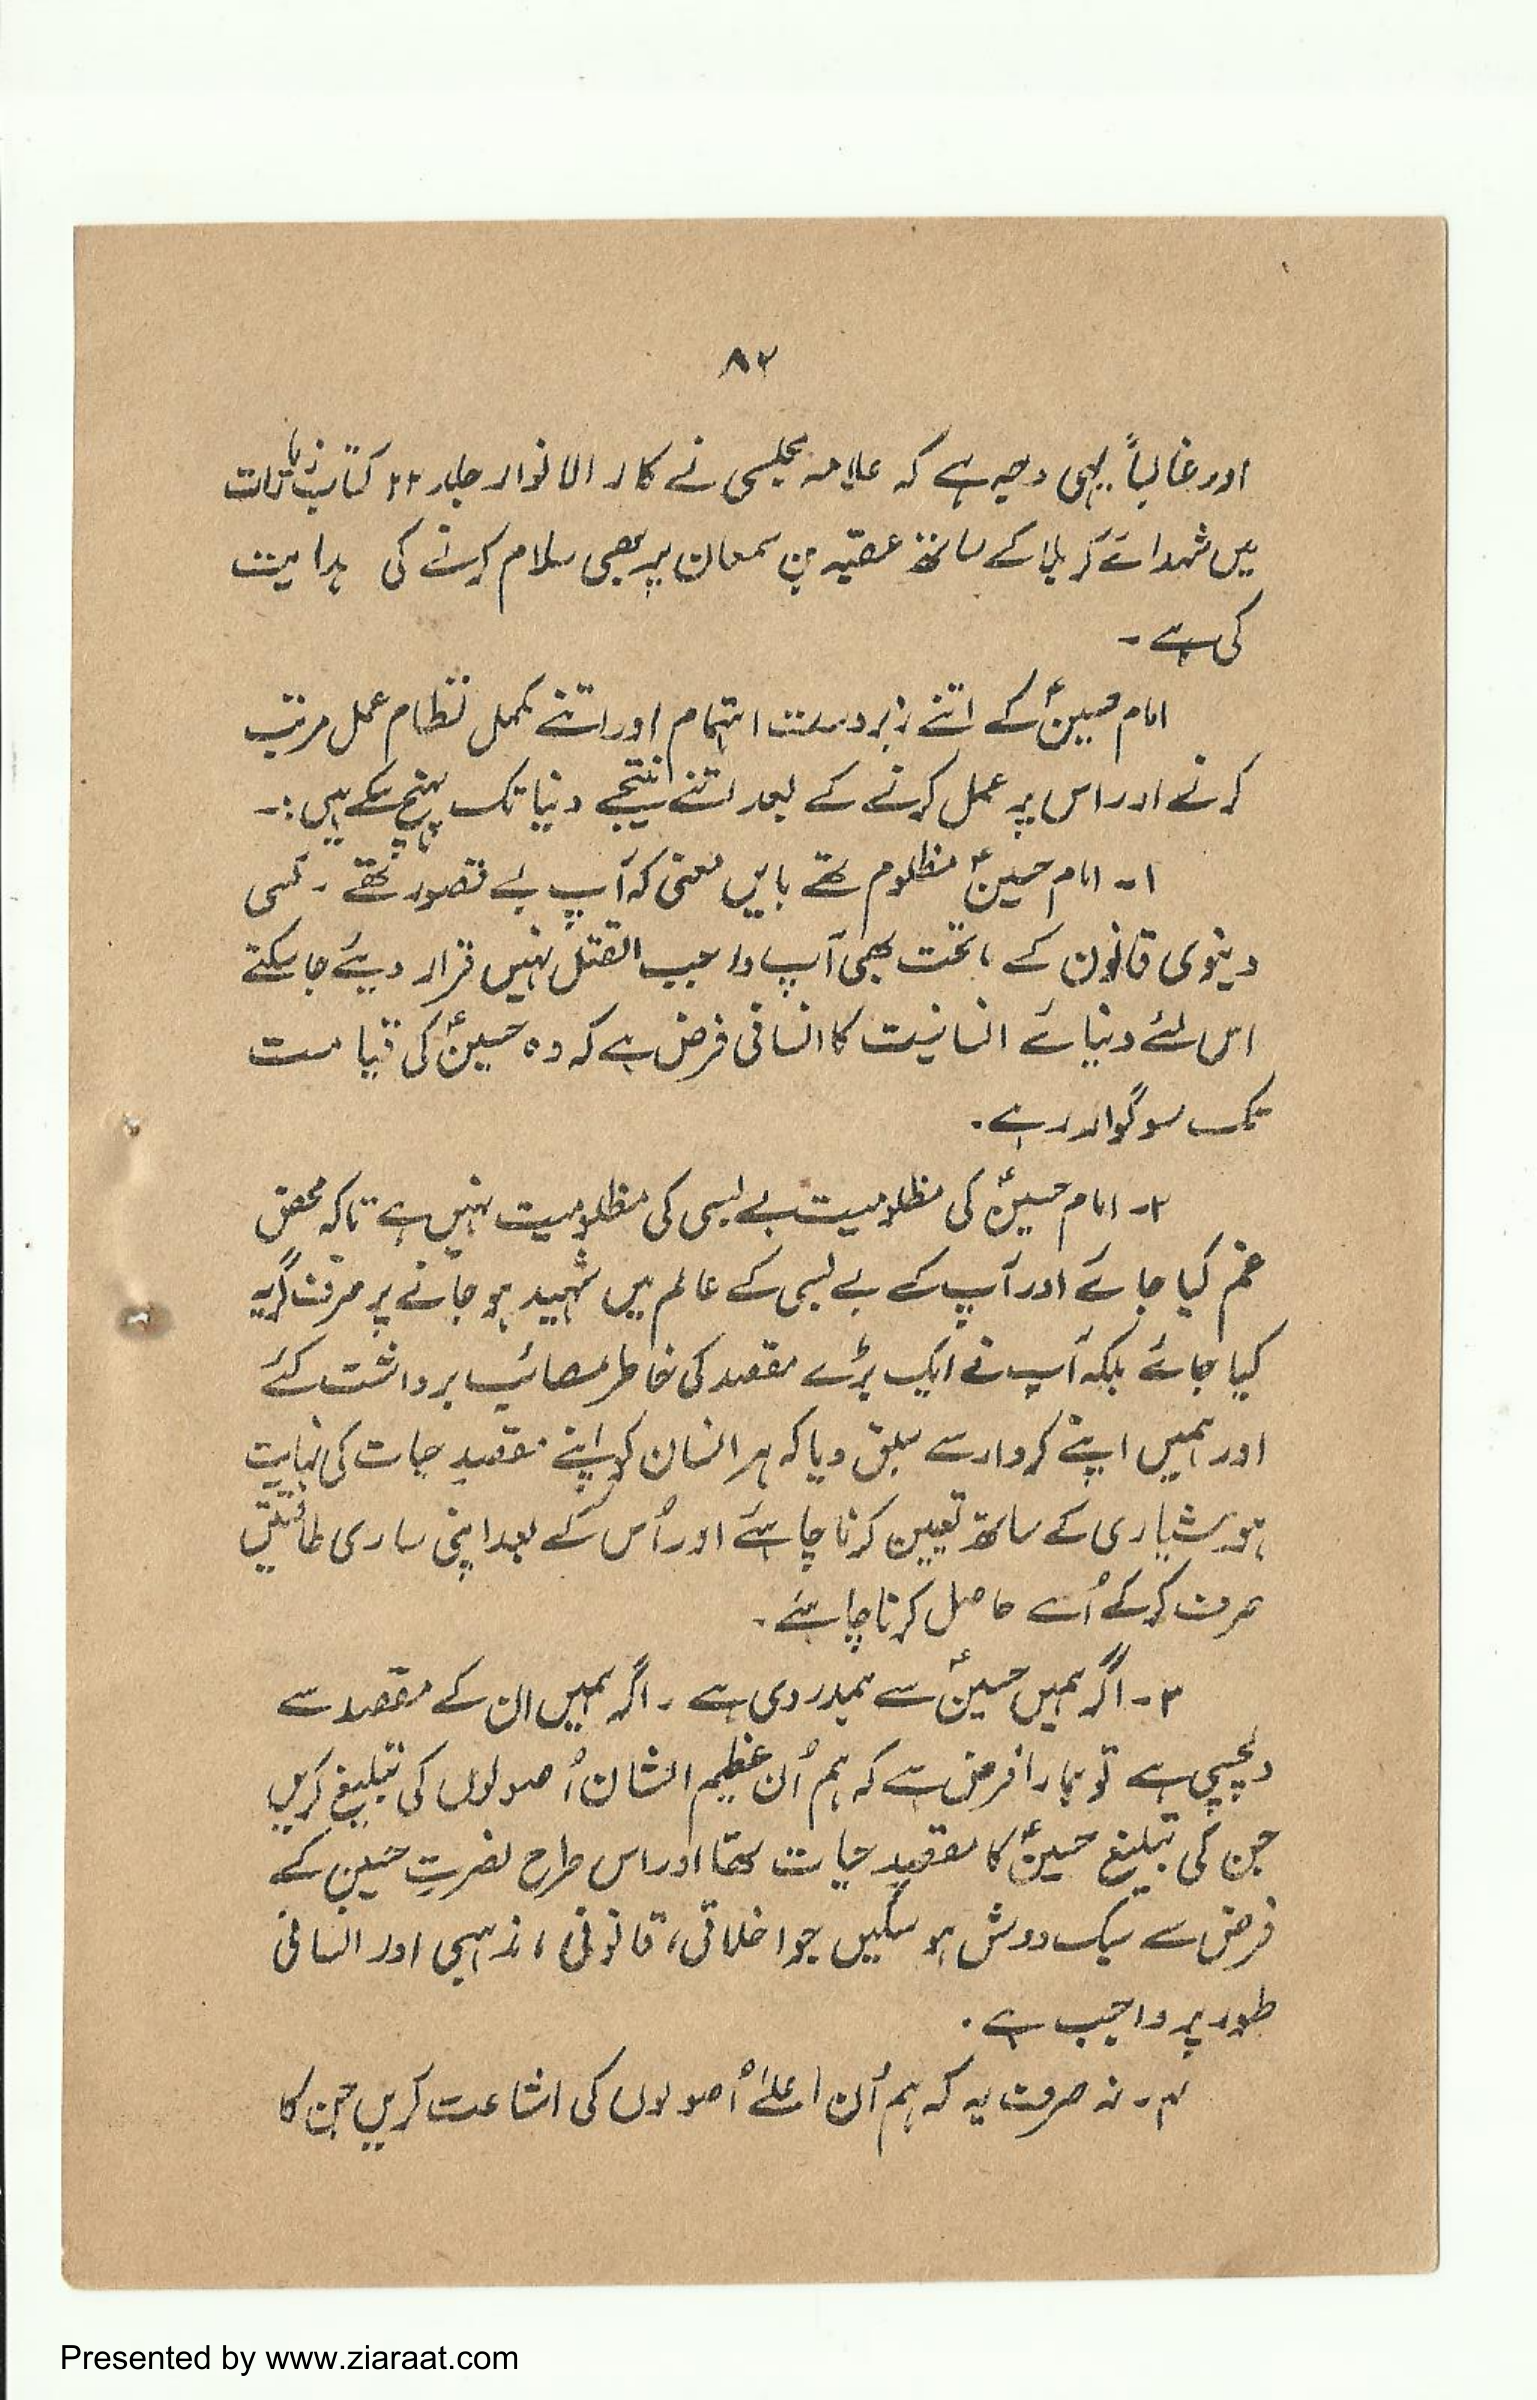 ۸۲
اور غالباً یہی وجہ ہے کہ علامہ مجلسی نے بحار الانوار جلد ۲۲ کتاب زیارات
میں شہدائے کربلا کے ساتھ عقبہ بن سمعان پر بھی سلام کرنے کی ہدایت
کی ہے ۔
امام حسینؑ کے اتنے زبردست اہتمام اور اتنے مکمل نظام عمل مرتب
کرنے اور اس پر عمل کرنے کے بعد اتنے نتیجے دنیا تک پہنچ سکے ہیں :۔
۱۔ امام حسینؑ مظلوم تھے بایں معنی کہ آپ بے قصور تھے ۔ کسی
دنیوی قانون کے ماتحت بھی آپ واجب القتل نہیں قرار دیئے جا سکتے
اس لئے دنیائے انسانیت کا انسانی فرض ہے کہ وہ حسینؑ کی قیامت
تک سوگوار رہے ۔
۲۔ امام حسینؑ کی مظلومیت بے بسی کی مظلومیت نہیں ہے تاکہ محض
غم کیا جائے اور آپ کے بے بسی کے عالم میں شہید ہو جانے پر صرف گریہ
کیا جائے بلکہ آپ نے ایک بڑے مقصد کی خاطر مصائب برداشت کئے
اور ہمیں اپنے کردار سے سبق دیا کہ ہر انسان کو اپنے مقصدِ حیات کی نہایت
ہوشیاری کے ساتھ تعیین کرنا چاہئے اور اُس کے بعد اپنی ساری طاقتیں
صرف کر کے اُسے حاصل کرنا چاہئے ۔
۳۔ اگر ہمیں حسینؑ سے ہمدردی ہے ۔ اگر ہمیں ان کے مقصد سے
دلچسپی ہے تو ہمارا فرض ہے کہ ہم اُن عظیم الشان اُصولوں کی تبلیغ کریں
جن کی تبلیغ حسینؑ کا مقصدِ حیات تھا اور اس طرح نصرتِ حسین کے
فرض سے سبک دوش ہو سکیں جو اخلاقی، قانونی، مذہبی اور انسانی
طور پر واجب ہے ۔
۴۔ نہ صرف یہ کہ ہم اُن اعلیٰ اُصولوں کی اشاعت کریں جن کا
Presented by www.ziaraat.com